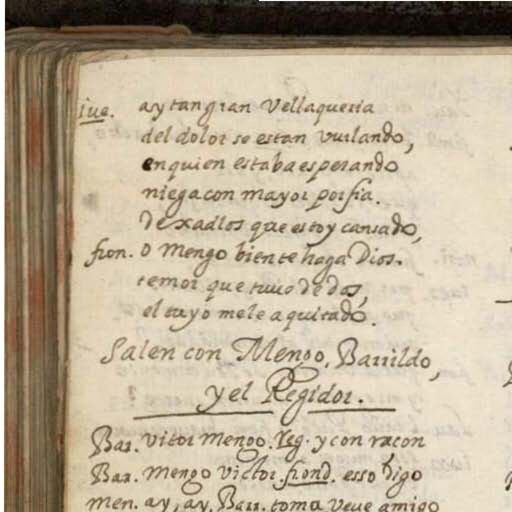 iue. ay tan gran Vellaqueria
del dolor se estan vurlando,
en quien estaba esperando
niega con mayor porfia.
dexadlos que estoy cansado,
fron. O Mengo bien te haga Dios.
temor que tuuo de dos,
el tuyo me le a quitado.
Salen con Mengo, Barrildo,
y el Regidor.
Bar. vitor Mengo. reg. y con raçon
Bar. Mengo victor. frond. esso digo
men. ay, ay, Barr. toma veue amigo